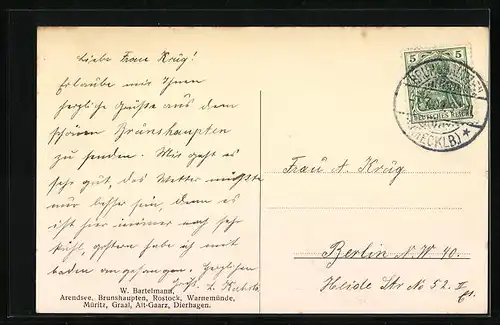 Liebe Frau Krüg!
Erlaube mir Ihnen
herzliche Grüße aus dem
schönen Brunshaupten
zu senden. Mir geht es
sehr gut, das Wetter müßte
nur besser sein, denn es
ist hier immer noch sehr
kühl, gestern habe ich mit
baden angefangen. Herzlichen
Gruß
W. Bartelmann,
Arendsee, Brunshaupten, Rostock, Warnemünde,
Müritz, Graal, Alt-Gaarz, Dierhagen.
5 5
DEUTSCHES REICH
(MECKLB)
Frau A. Krüg
Berlin N.W. 40.
Heide Str No 52. II